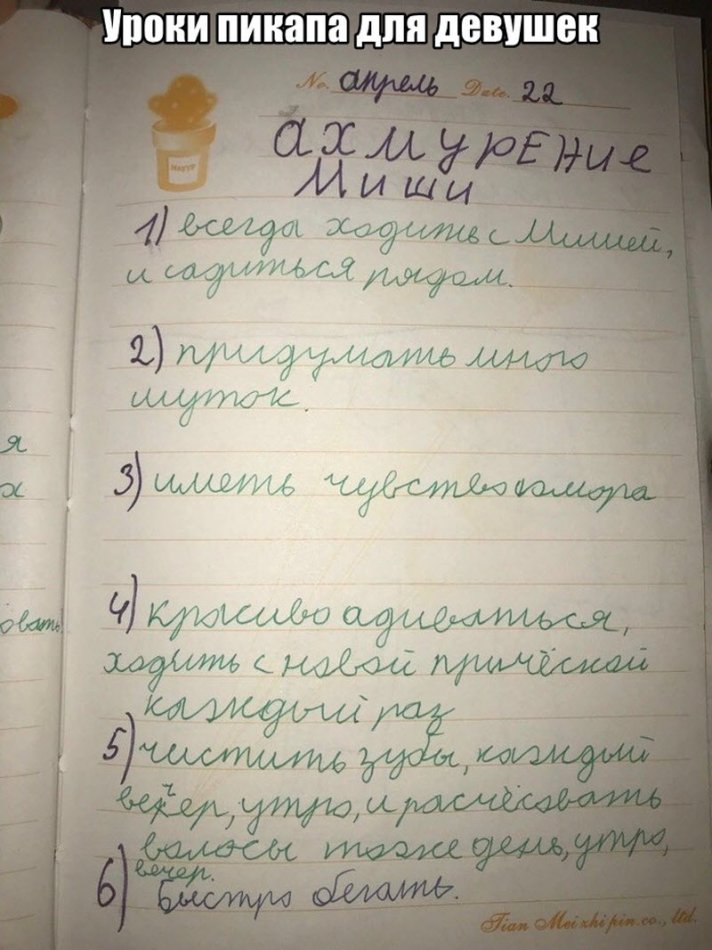 Уроки пикапа для девушек
No. апрель Date. 22
ахмурЕние
Миши
1) всегда ходить с Мишей,
и садиться рядом.
2) придумать много
шуток.
3) иметь чувство юмора
4) красиво адиваться,
ходить с новой причёской
каждый раз
5) чистить зубы, каждый
вечер, утро, и расчёсовать
волосы тоже день, утро,
вечер.
6) Быстро бегать.
я
х
овать
Tian Mei zhi pin co., ltd.